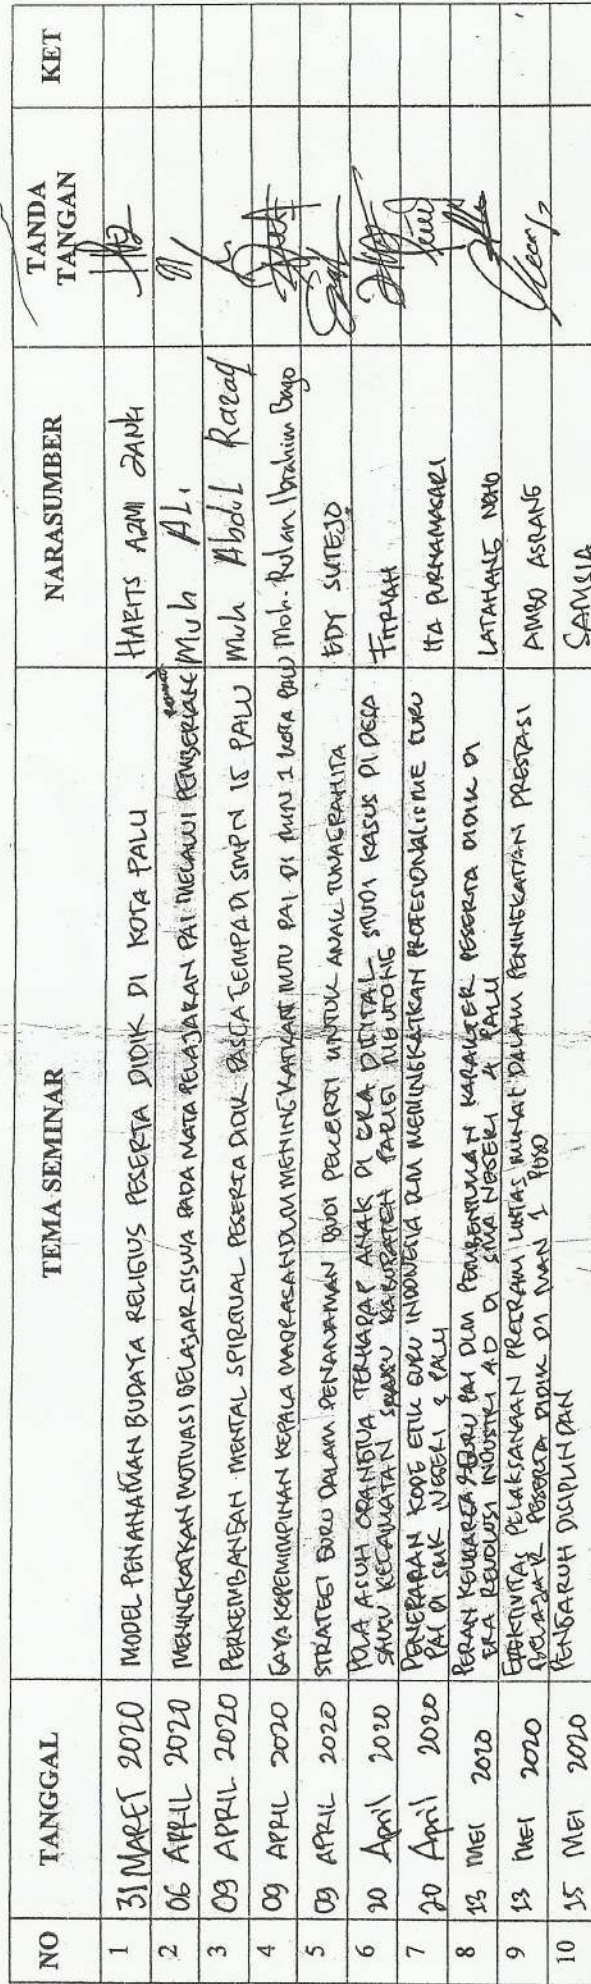 NO TANGGAL TEMA SEMINAR NARASUMBER TANDA TANGAN KET
1 31 MARET 2020 MODEL PENANAMAN BUDAYA RELIGIUS PESERTA DIDIK DI KOTA PALU HARITS AZMI ZANKI
2 06 APRIL 2020 MENINGKATKAN MOTIVASI BELAJAR SISWA PADA MATA PELAJARAN PAI MELALUI PEMBERIAN Reward Muh ALI
3 09 APRIL 2020 PERKEMBANGAN MENTAL SPIRITUAL PESERTA DIDIK PASCA GEMPA DI SMPN 15 PALU Muh Abdul Razaq
4 09 APRIL 2020 GAYA KEPEMIMPINAN KEPALA MADRASAH DLM MENINGKATKAN MUTU PAI DI MIN 1 KOTA PALU Moh. Rulan Ibrahim Bago
5 09 APRIL 2020 STRATEGI GURU DALAM PENANAMAN BUDI PEKERTI UNTUK ANAK TUNAGRAHITA EDY SUTEJO
6 20 April 2020 POLA ASUH ORANGTUA TERHADAP ANAK DI ERA DIGITAL STUDI KASUS DI DESA
SAUSU KECAMATAN SAUSU KABUPATEN PARIGI MOUTONG FITRIAH
7 20 April 2020 PENERAPAN KODE ETIK GURU INDONESIA DLM MENINGKATKAN PROFESIONALISME GURU
PAI DI SMK NEGERI 2 PALU ITA PURNAMASARI
8 13 MEI 2020 PERAN KELUARGA & GURU PAI DLM PEMBENTUKAN KARAKTER PESERTA DIDIK DI
ERA REVOLUSI INDUSTRI 4.0 DI SMA NEGERI 4 PALU LATAHANG NOHO
9 13 MEI 2020 EFEKTIVITAS PELAKSANAAN PROGRAM LINTAS MINAT DALAM PENINGKATAN PRESTASI
BELAJAR PESERTA DIDIK DI MAN 1 POSO AMBO ASRANG
10 15 MEI 2020 PENGARUH DISIPLIN DAN SAMSIA